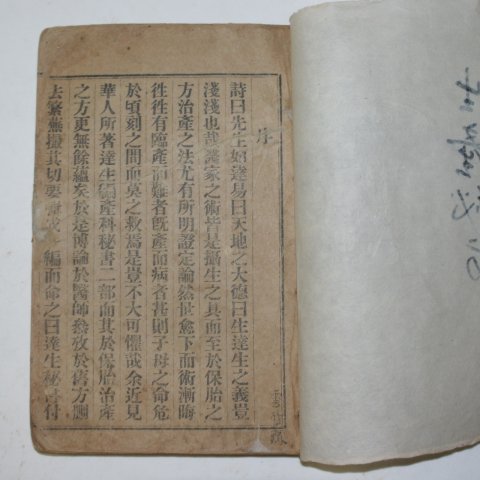 序
詩曰先生如達易曰天地之大德曰生達生之義豈
淺淺也哉醫家之術皆是攝生之具而至於保胎之
方治產之法尤有所明證定論然世愈下而術漸晦
徃徃有臨產而難者旣產而病者甚則子母之命危
於頃刻之間而莫之救焉是豈不大可懼哉余近見
華人所著達生編產科秘書二部而其於保胎治產
之方更無餘蘊矣於是博論於醫師叅攷於舊方刪
去繁蕪撮其切要 編而命之曰達生秘書付